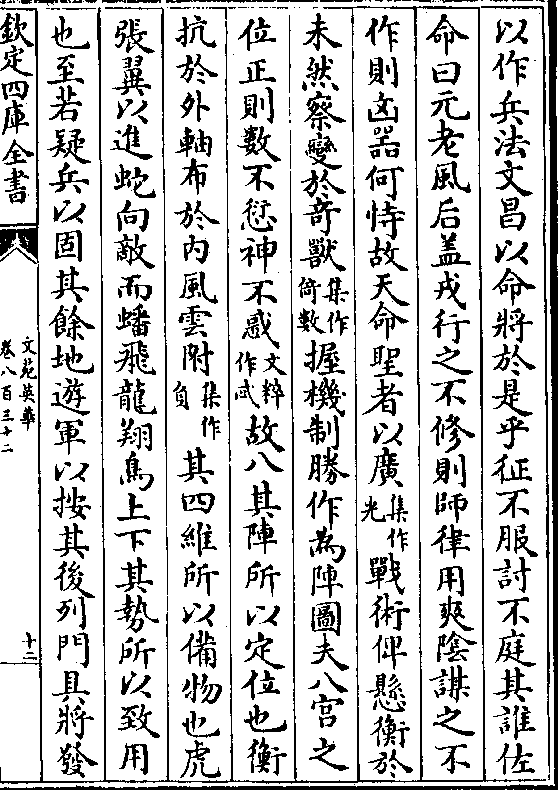 以作兵法文昌以命將於是乎征不服討不庭其誰佐
命曰元老風后盖戎行之不修則師律用爽陰謀之不
作則凶器何恃故天命聖者以廣集作光戰術俾懸衡於
未然察變於竒獸集作倚數握機制勝作為陣圖夫八宫之
位正則數不愆神不惑文粹作忒故八其陣所以定位也衡
抗於外軸布於内風雲附集作負其四維所以備物也虎
張翼以進蛇向敵而蟠飛龍翔鳥上下其勢所以致用
也至若疑兵以固其餘地遊軍以按其後列門具將發
欽定四庫全書
文苑英華
卷八百三十二
十二